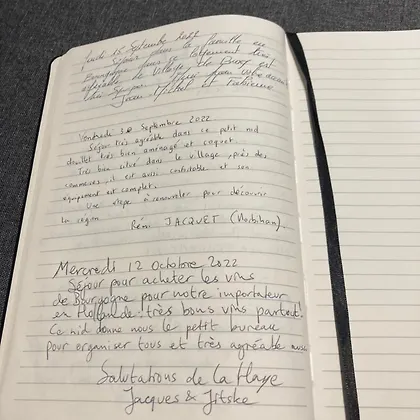 Jeudi 15 Septembre 2022
Séjour dans la famille en
Bourgogne dans ce
de village, le Bourg est
Merci pour votre accueil
Jean-Michel et
Vendredi 30 Septembre 2022.
Séjour très agréable dans ce petit nid
douillet très bien aménagé et coquet
Très bien situé dans le village, près des
commerces, il est aussi confortable et son
équipement est complet.
Une étape à renouveler pour découvrir
la région
Rémi JACQUET (Morbihan).
Mercredi 12 Octobre 2022
Séjour pour acheter les vins
de Bourgogne pour notre importateur
en Hollande: très bons vins partout!
Ce nid donne nous le petit bureau
pour organiser tous et très agréable aussi
Salutations de la Haye
Jacques & Jitske